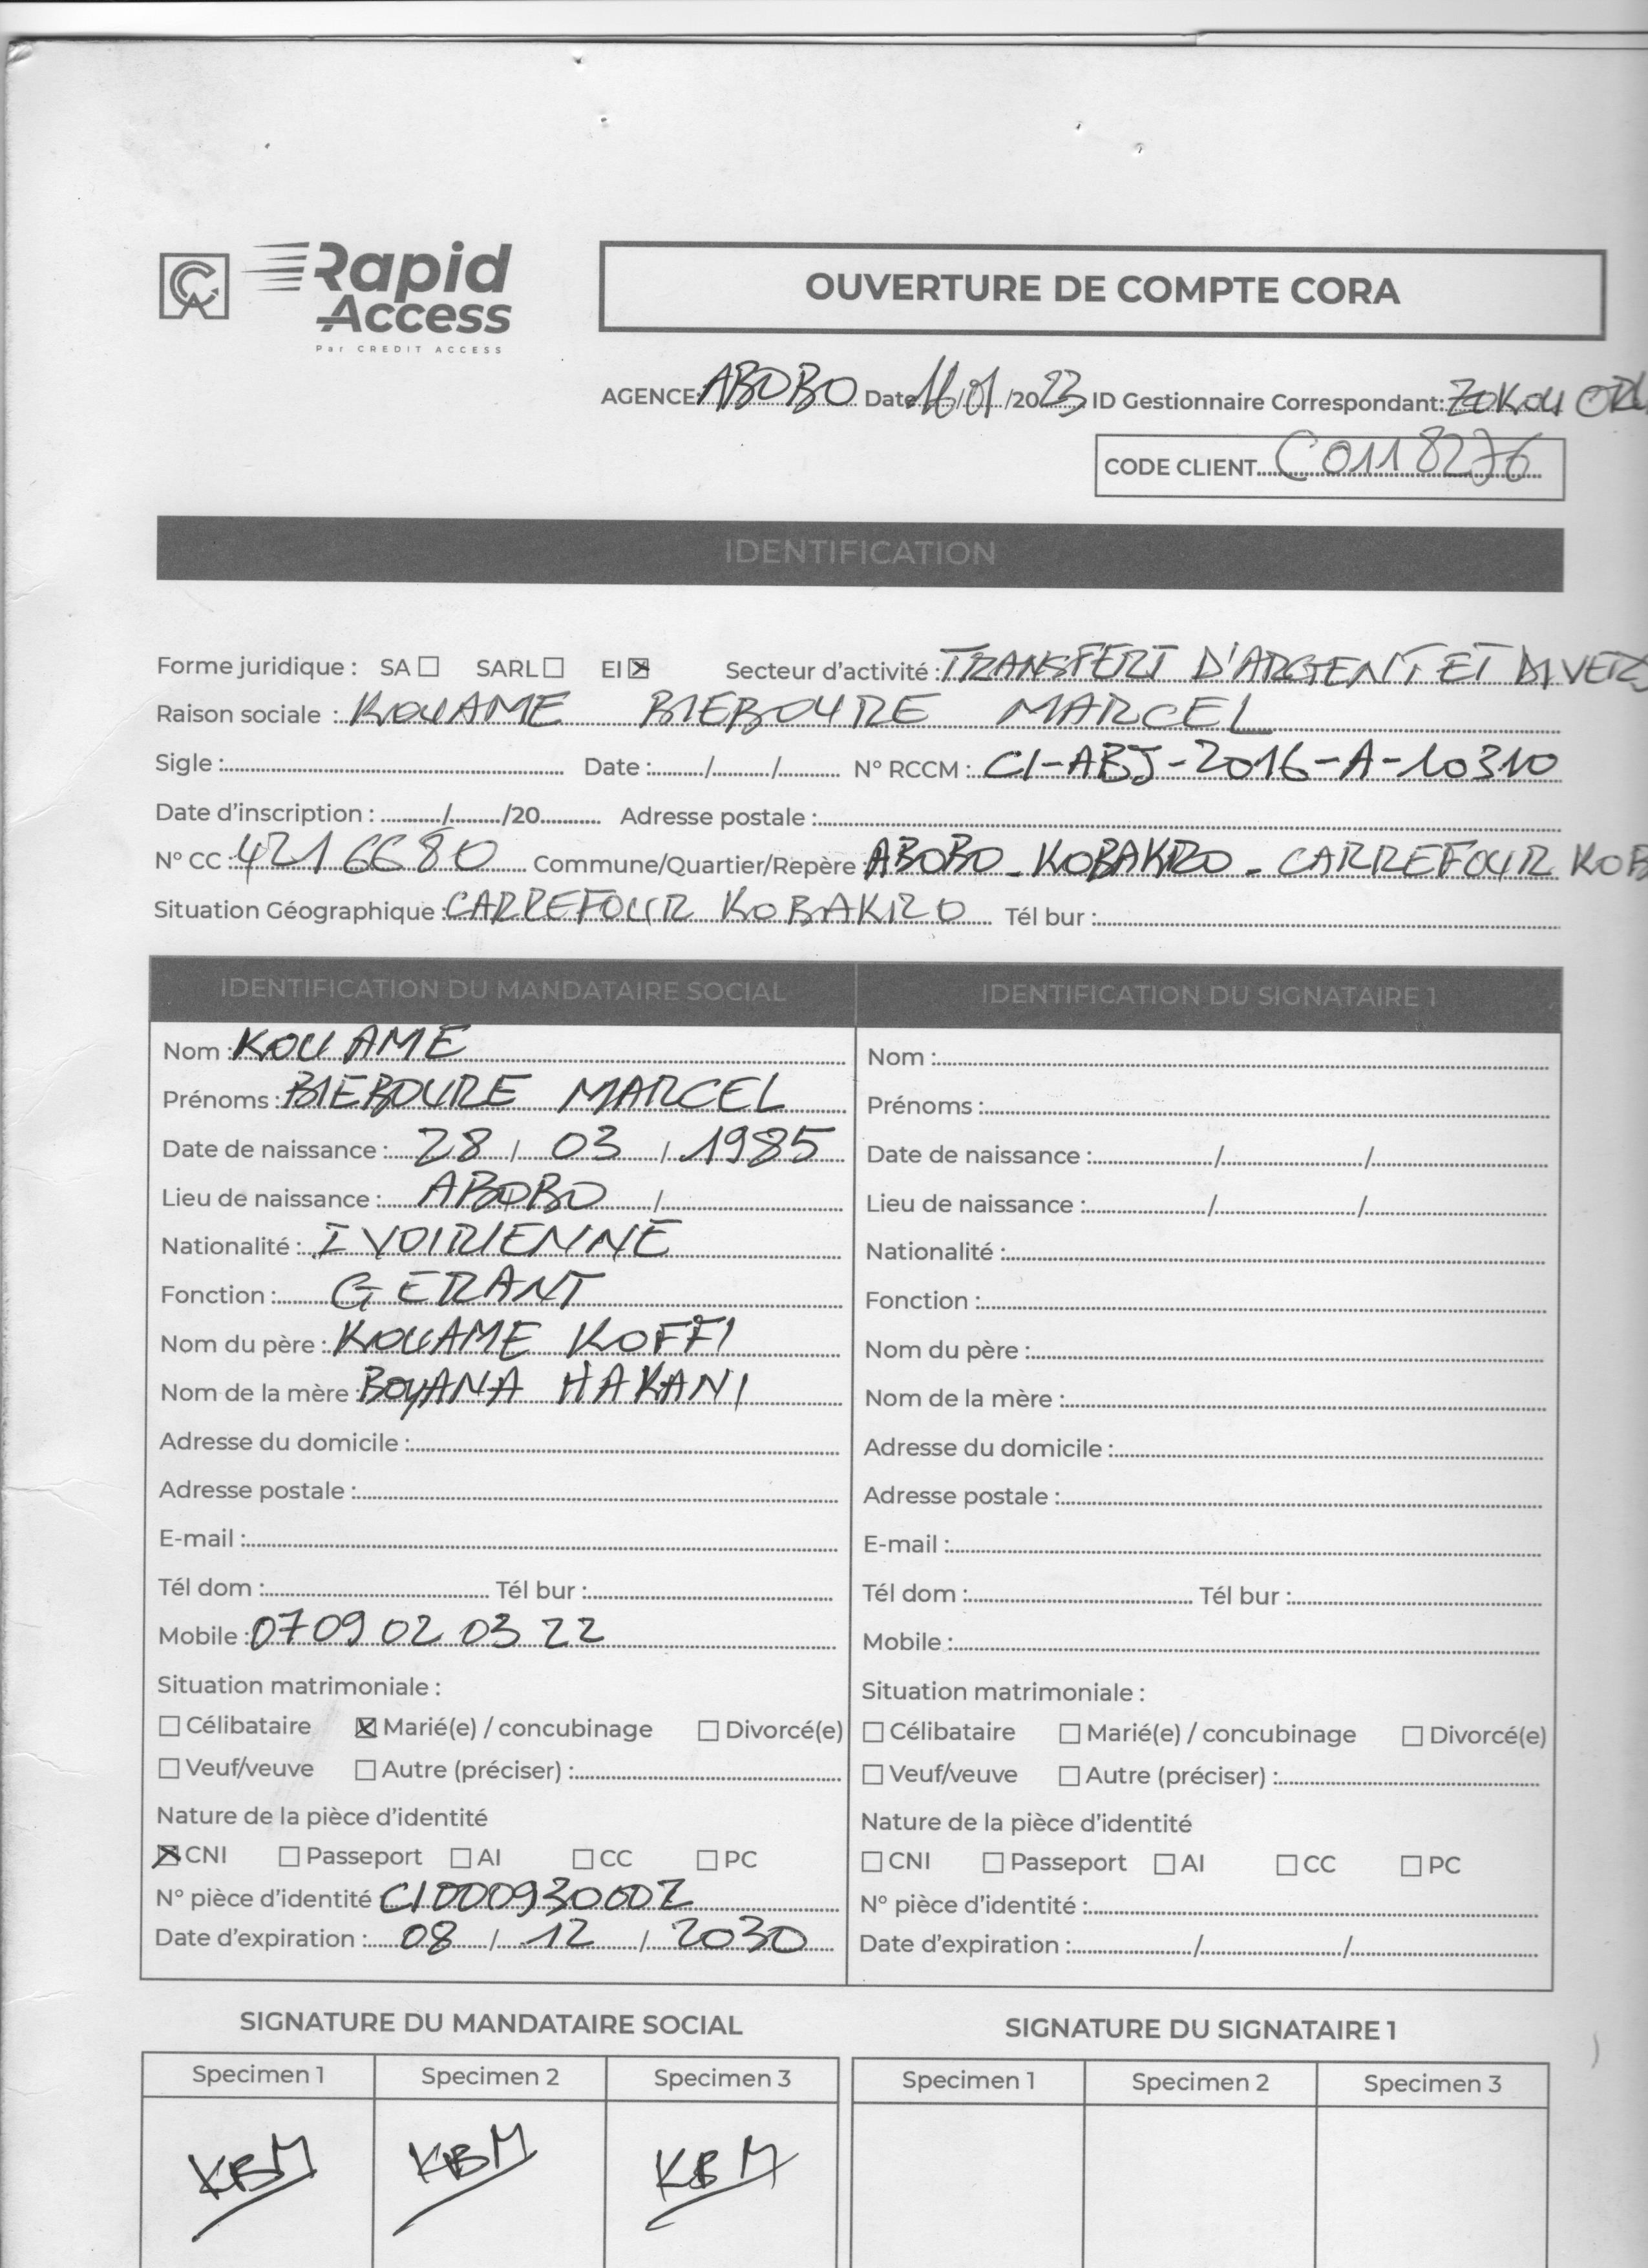 Rapid
Access
Par CREDIT ACCESS
OUVERTURE DE COMPTE CORA
AGENCE: ABOBO Date 16/01/2023 ID Gestionnaire Correspondant: ZOKOU
CODE CLIENT C0118276
IDENTIFICATION
Forme juridique : SA ☐ SARL ☐ EI ☒ Secteur d'activité : TRANSFERT D'ARGENT ET DIVERS
Raison sociale : KOUAME BIEBOURE MARCEL
Sigle : Date : / / N° RCCM : CI-ABJ-2016-A-10310
Date d'inscription : / /20 Adresse postale :
N° CC : 4216680 Commune/Quartier/Repère : ABOBO - KOBAKRO - CARREFOUR KOB
Situation Géographique : CARREFOUR KOBAKRO Tél bur :
IDENTIFICATION DU MANDATAIRE SOCIAL
Nom : KOUAME
Prénoms : BIEBOURE MARCEL
Date de naissance : 28 / 03 / 1985
Lieu de naissance : ABOBO /
Nationalité : IVOIRIENNE
Fonction : GERANT
Nom du père : KOUAME KOFFI
Nom de la mère : BOYANA HAKANI
Adresse du domicile :
Adresse postale :
E-mail :
Tél dom : Tél bur :
Mobile : 07 09 02 03 22
Situation matrimoniale :
☐ Célibataire ☒ Marié(e) / concubinage ☐ Divorcé(e)
☐ Veuf/veuve ☐ Autre (préciser) :
Nature de la pièce d'identité
☒ CNI ☐ Passeport ☐ AI ☐ CC ☐ PC
N° pièce d'identité CI000930002
Date d'expiration : 08 / 12 / 2030
IDENTIFICATION DU SIGNATAIRE 1
Nom :
Prénoms :
Date de naissance : / /
Lieu de naissance : / /
Nationalité :
Fonction :
Nom du père :
Nom de la mère :
Adresse du domicile :
Adresse postale :
E-mail :
Tél dom : Tél bur :
Mobile :
Situation matrimoniale :
☐ Célibataire ☐ Marié(e) / concubinage ☐ Divorcé(e)
☐ Veuf/veuve ☐ Autre (préciser) :
Nature de la pièce d'identité
☐ CNI ☐ Passeport ☐ AI ☐ CC ☐ PC
N° pièce d'identité :
Date d'expiration : / /
SIGNATURE DU MANDATAIRE SOCIAL
Specimen 1 Specimen 2 Specimen 3
KBM KBM KBM
SIGNATURE DU SIGNATAIRE 1
Specimen 1 Specimen 2 Specimen 3